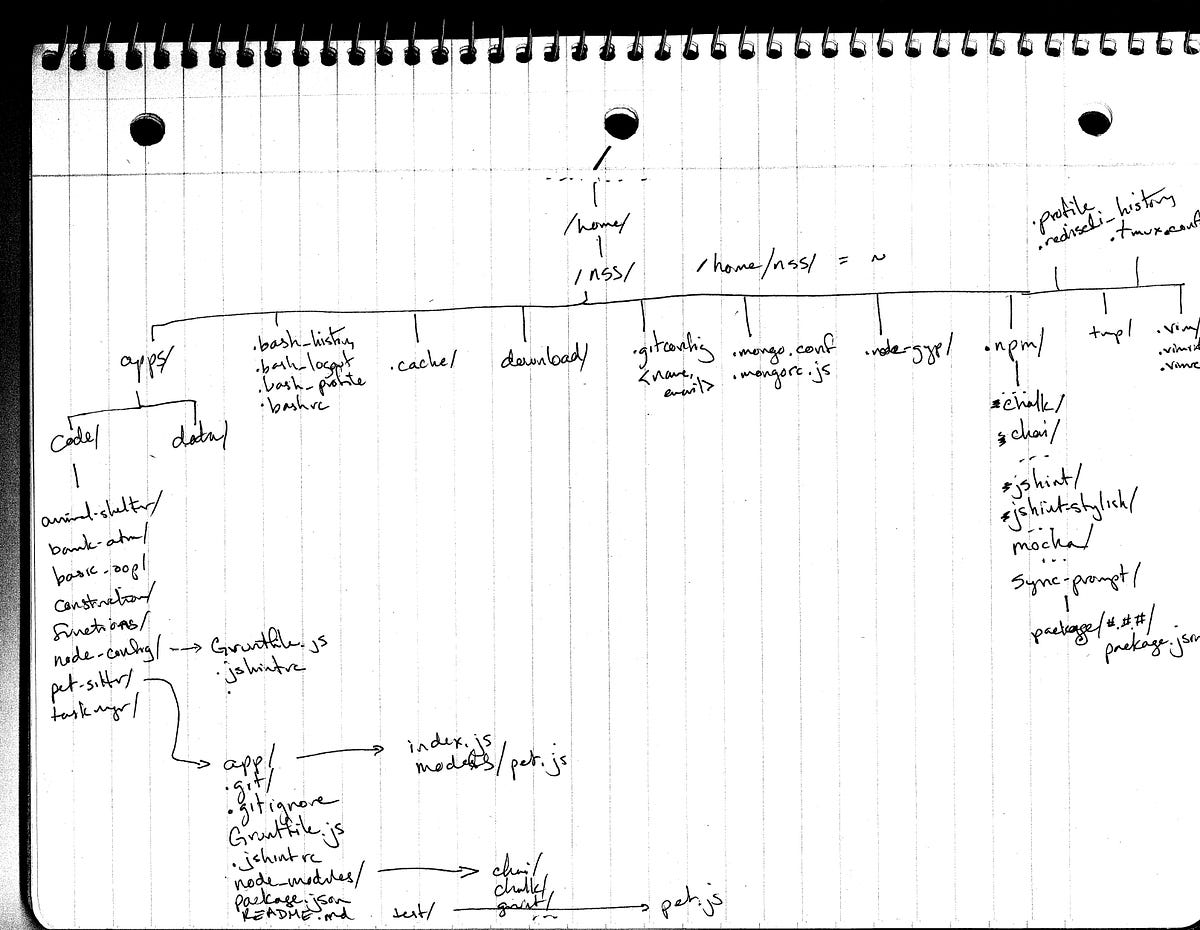 /
/home/
/nss/
/home/nss/ = ~
.profile
.rediscli_history
.tmux.conf
apps/
.bash_history
.bash_logout
.bash_profile
.bashrc
.cache/
download/
.gitconfig
<name,
email>
.mongo.conf
.mongorc.js
.node-gyp/
.npm/
tmp/
.vim/
code/
data/
animal-shelter/
bank-atm/
basic-oop/
construction/
functions/
node-config/
pet-sitter/
taskmgr/
Gruntfile.js
.jshintrc
.
app/
.git/
.gitignore
Gruntfile.js
.jshintrc
node_modules/
package.json
README.md
test/
index.js
models/pet.js
chai/
chalk/
grunt/
pet.js
chalk/
chai/
jshint/
jshint-stylish/
mocha/
sync-prompt/
package/#.#.#/
package.json